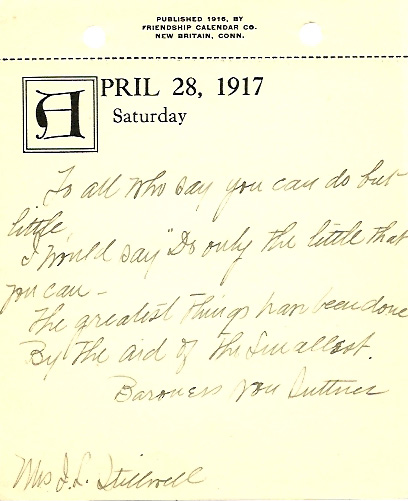 PUBLISHED 1916, BY
FRIENDSHIP CALENDAR CO.
NEW BRITAIN, CONN.
APRIL 28, 1917
Saturday
To all who say you can do but
little,
I would say "Do only the little that
you can –
The greatest things have been done
By the aid of the smallest.
Baroness von Suttner
Mrs J. L. Stillwell